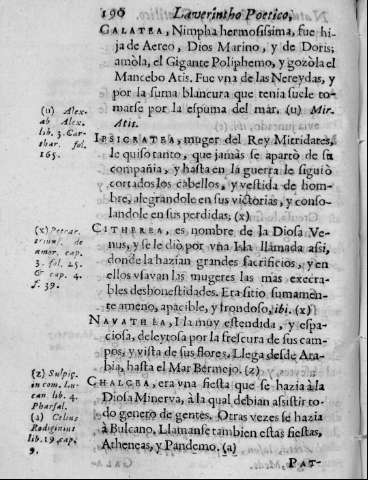 190 Laverintho Poetico,
GALATEA, Nimpha hermosissima, fue hi-
ja de Aereo, Dios Marino, y de Doris;
amòla, el Gigante Poliphemo, y gozòla el
Mancebo Atis. Fue vna de las Nereydas, y
por la suma blancura que tenia suele to-
marse por la espuma del mar. (u) Mir.
Atis.
(u) Alex-
ab Alex.
lib. 3. Car-
thar. fol.
165.
IPSICRATEA, muger del Rey Mitridates,
le quiso tanto, que jamàs se apartò de su
compañia, y hasta en la guerra le siguiò
cortados los cabellos, y vestida de hom-
bre, alegrandole en sus victorias, y conso-
landole en sus perdidas, (x)
CITHEREA, es nombre de la Diosa Ve-
nus, y se le diò por vna Isla llamada assi,
donde la hazian grandes sacrificios, y en
ellos vsavan las mugeres las mas execra-
bles deshonestidades. Era sitio sumamen-
te ameno, apacible, y frondoso, ibi. (x)
(x) Petrar.
trium. de
amor, cap.
3. fol. 25.
& cap. 4.
f. 39.
NAVATHEA, Isla muy estendida, y espa-
ciosa, deleytosa por la frescura de sus cam-
pos, y vista de sus flores. Llega desde Ara-
bia, hasta el Mar Bermejo. (z)
CHALCEA, era vna fiesta que se hazia à la
Diosa Minerva, à la qual debian assistir to-
do genero de gentes. Otras vezes se hazia
à Bulcano. Llamanse tambien estas fiestas,
Atheneas, y Pandemo. (a)
(z) Sulpig.
in com. Lu-
can lib. 4.
Pharsal.
(a) Celius
Rodiginius
lib. 19. cap.
9.
PAT-